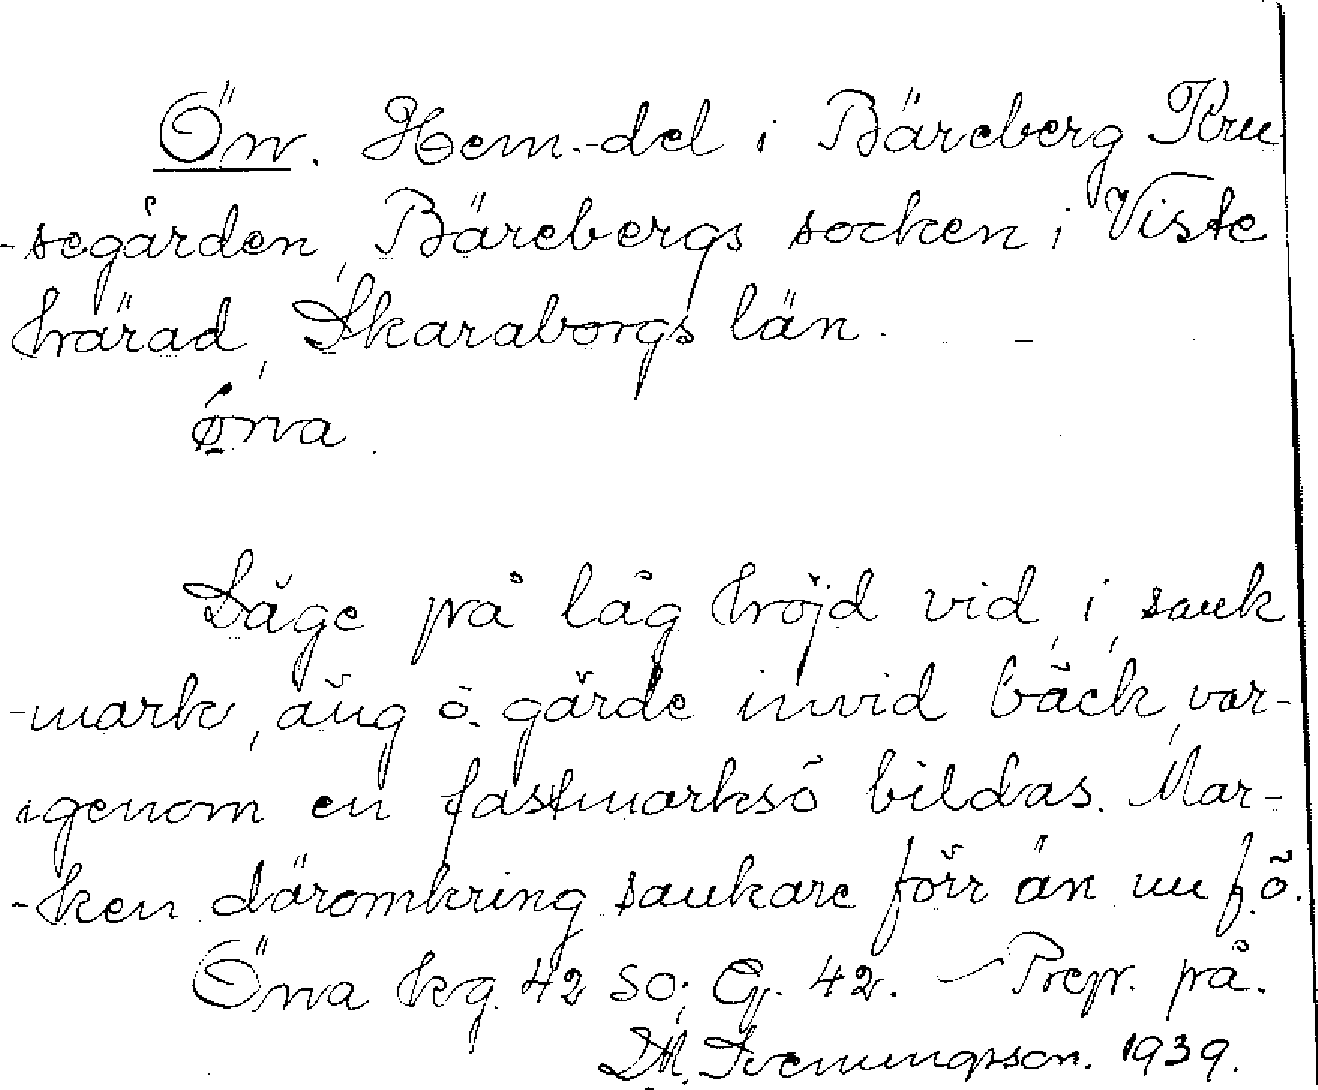 Ön. Hem.-del i Bäreberg Kru-
-segården, Bärebergs socken i Viste
härad, Skaraborgs län.
Läge på låg höjd vid, i, sank
-mark, äng o. gärde invid bäck, var-
igenom en fastmarksö bildas. Mar-
-ken däromkring sankare förr än nu f.ö.
Öna hg. 42 SO; G. 42. – Prep. på.
1939.